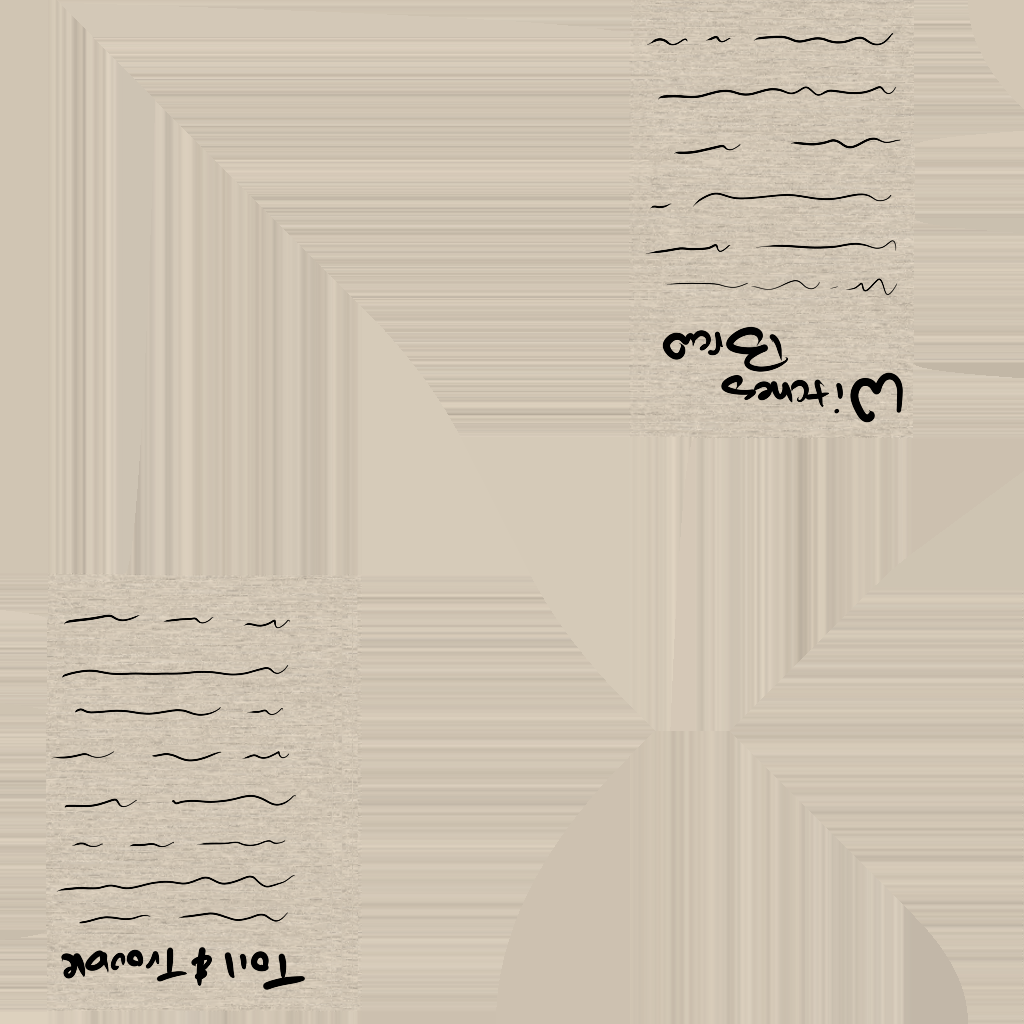 Witches
Brew
Toil & Trouble